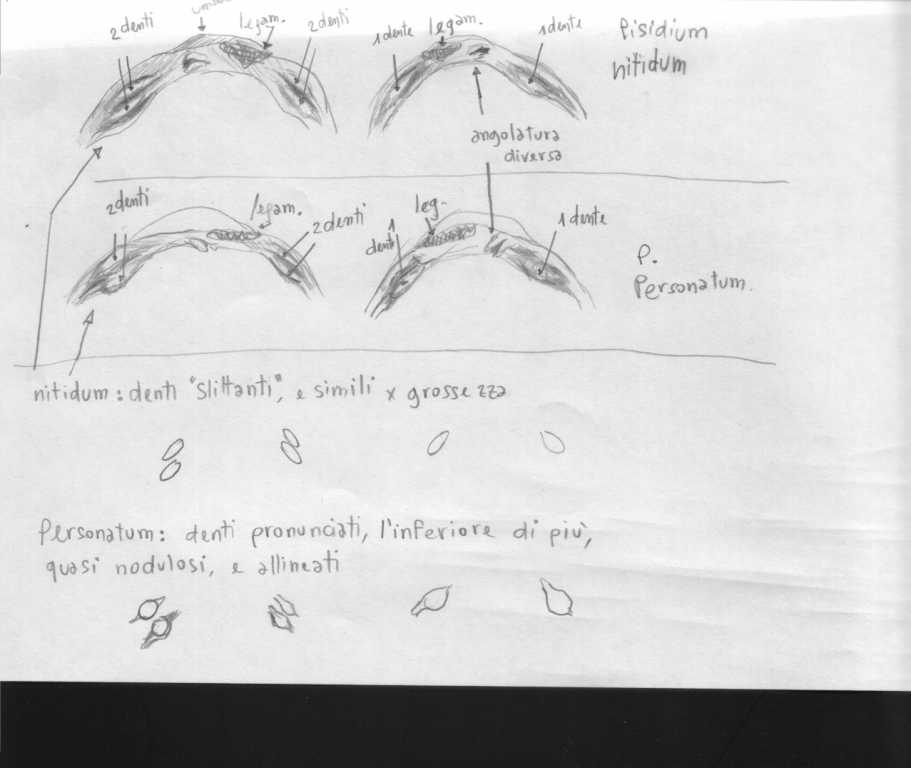 2 denti
legam.
2 denti
1 dente
legam.
1 dente
Pisidium
nitidum
angolatura
diversa
2 denti
legam.
2 denti
leg.
1
dente
1 dente
P.
Personatum.
nitidum: denti "slittanti", e simili x grossezza
Personatum: denti pronunciati, l'inferiore di più,
quasi nodulosi, e allineati